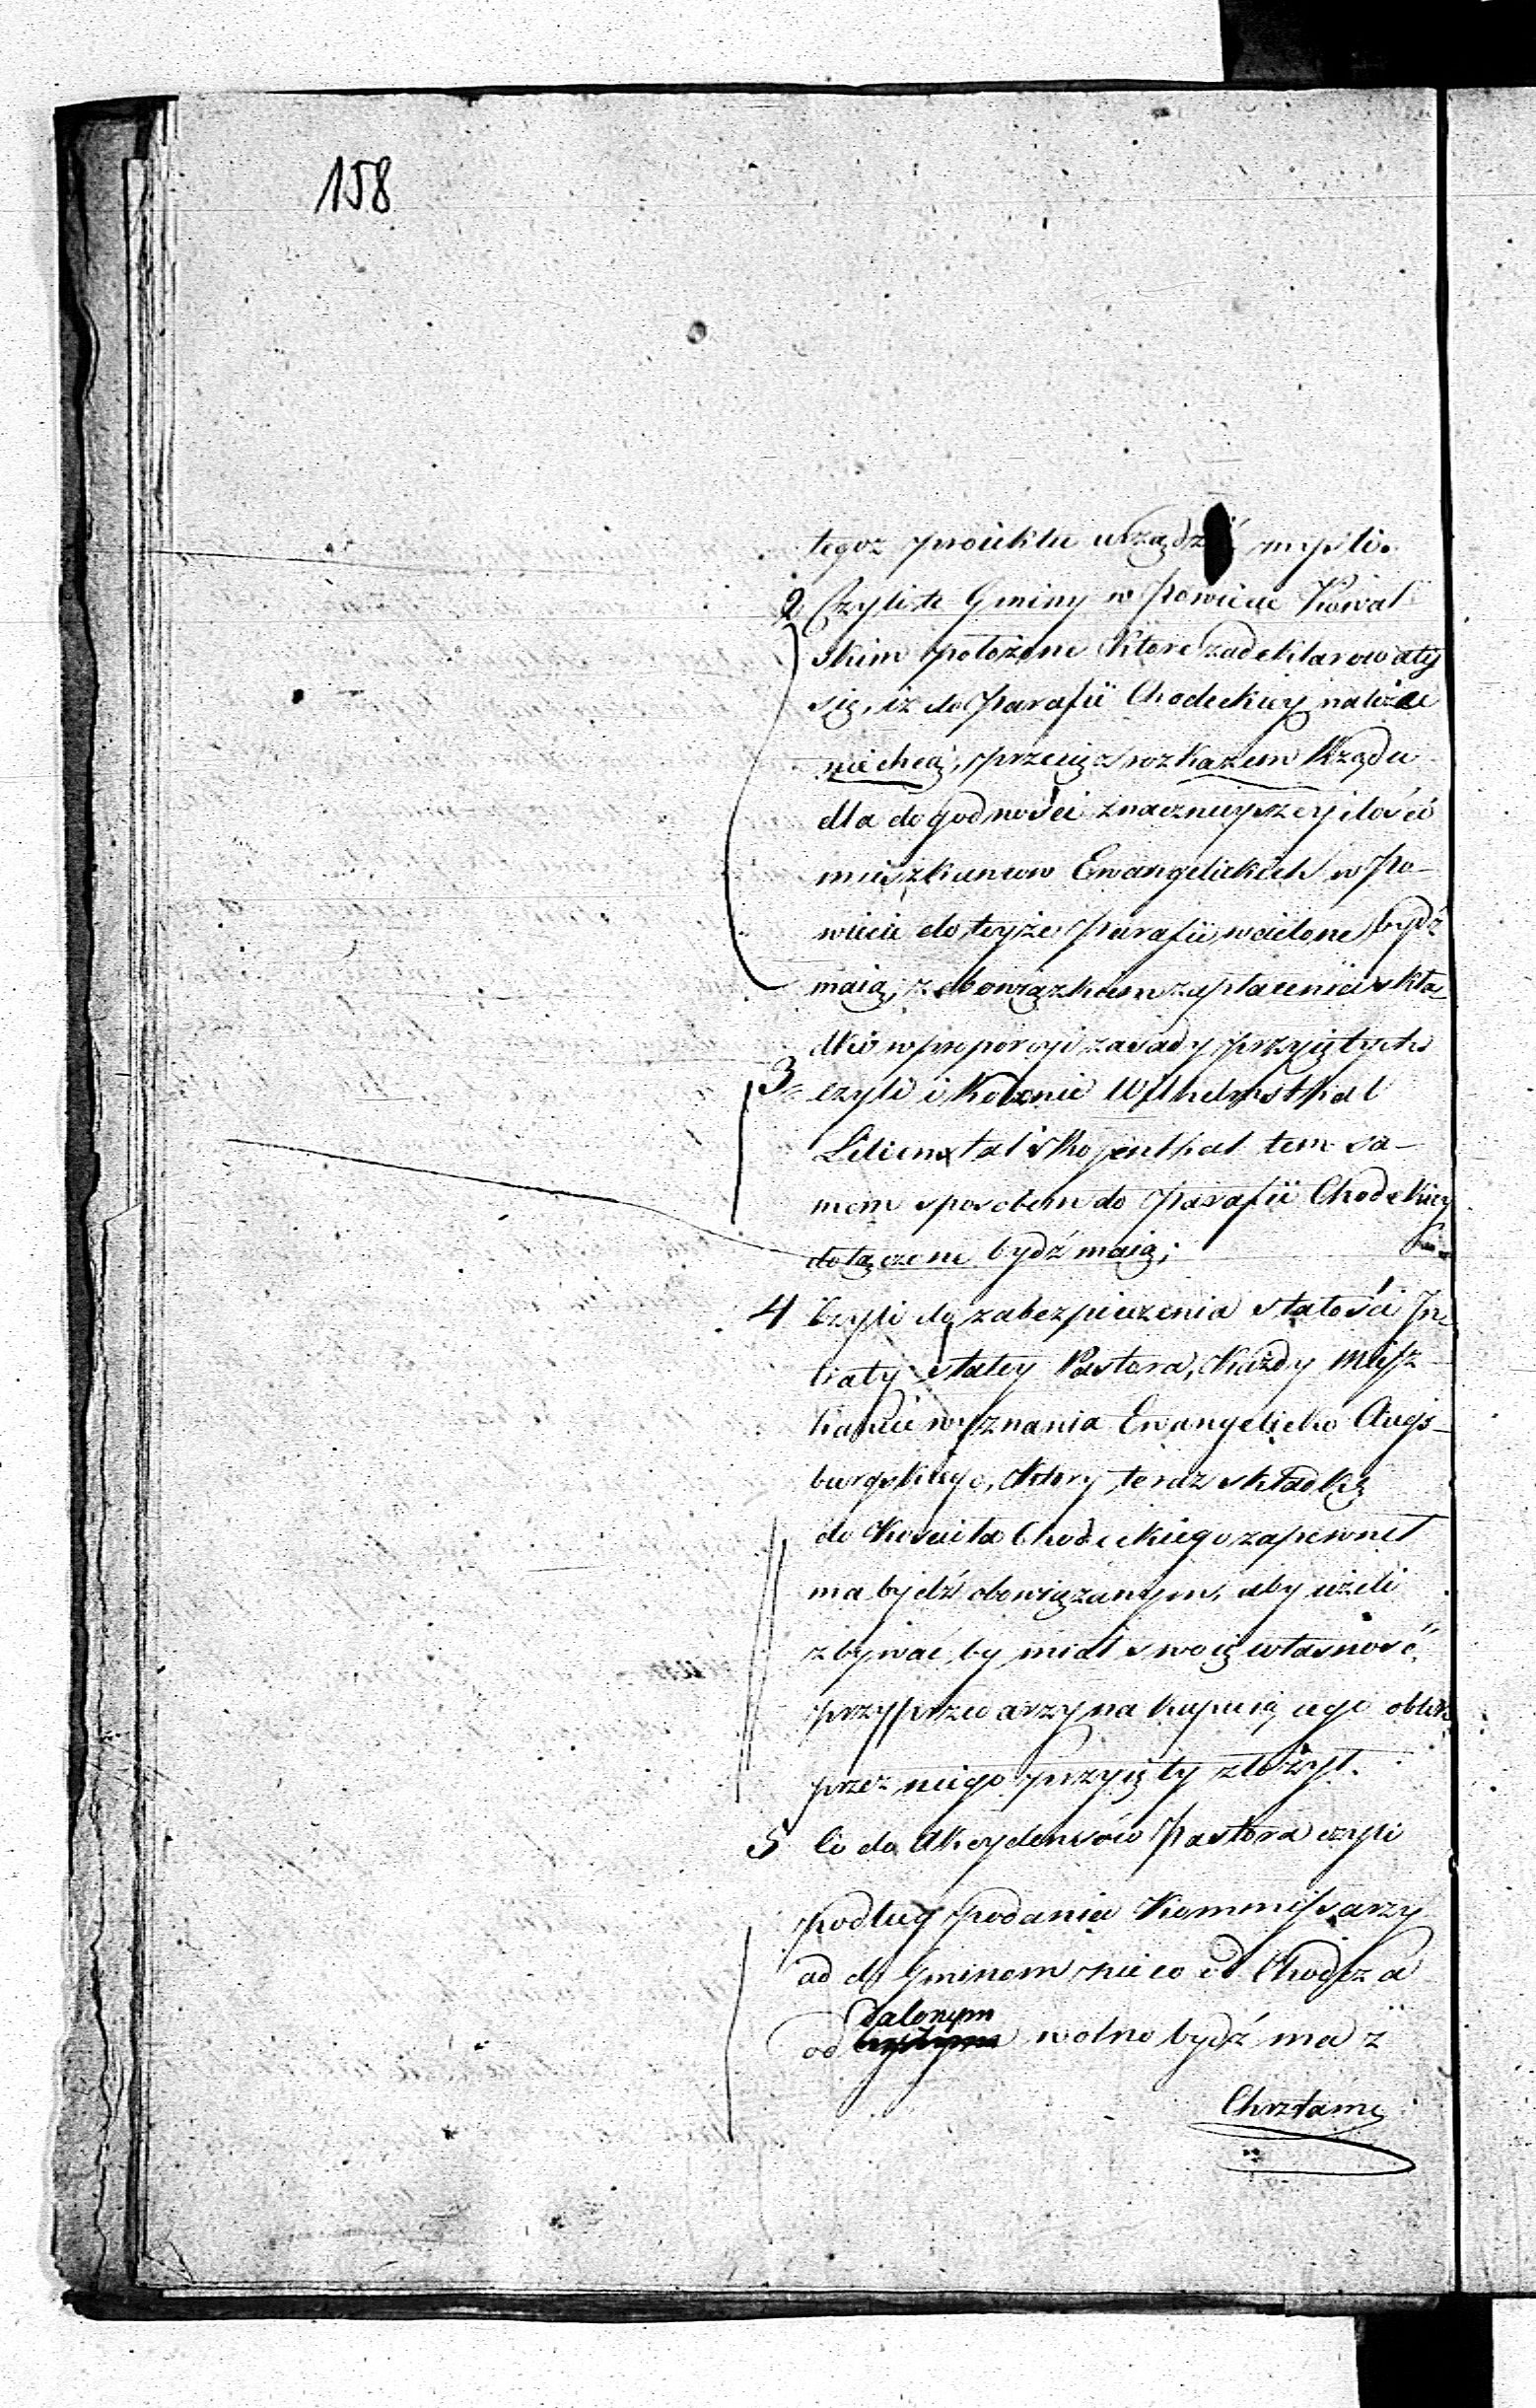 158
tegoz proiektu urządzić myśli.
2 Czyli te Gminy w Powiecie Kowal
skim położone które zadeklarowały
się, iż do Parafii Chodeckiey należeć
niechcą, przecięz rozkazem Rządu
dla dogodności znacznieyszey ilości
mieszkancow Ewangelickich w Po-
wiecie do teyże Parafii wcielone bydź
maią, z obowiązkiem zapłacenia skła
dki w proporcyi zasady przyiętych
3= czyli i Kolonie Wilhelmsthal
Lilienstal i Rosenthal tem sa-
mem sposobem do Parafii Chodeckiey
dołączone bydź maią;
4 Czyli do zabezpieczenia stałości In
traty stałey Pastora, Każdy miesz
kaniec wyznania Ewangelicko Augs-
burgskiego, który teraz składkę
do Kościoła Chodeckiego zapewnił
ma bydź obowiązanym, aby ieżeli
zbywać by miał swoią własność
przyprzedarzy na kupuią iego
przez niego przyięty złożył.
5 Co do Akcydensów Pastora czyli
podług podania Kommissarzy
ad d, Gminom nieco od Chodcza
od dalonym wolno bydź ma ż
Chrztami